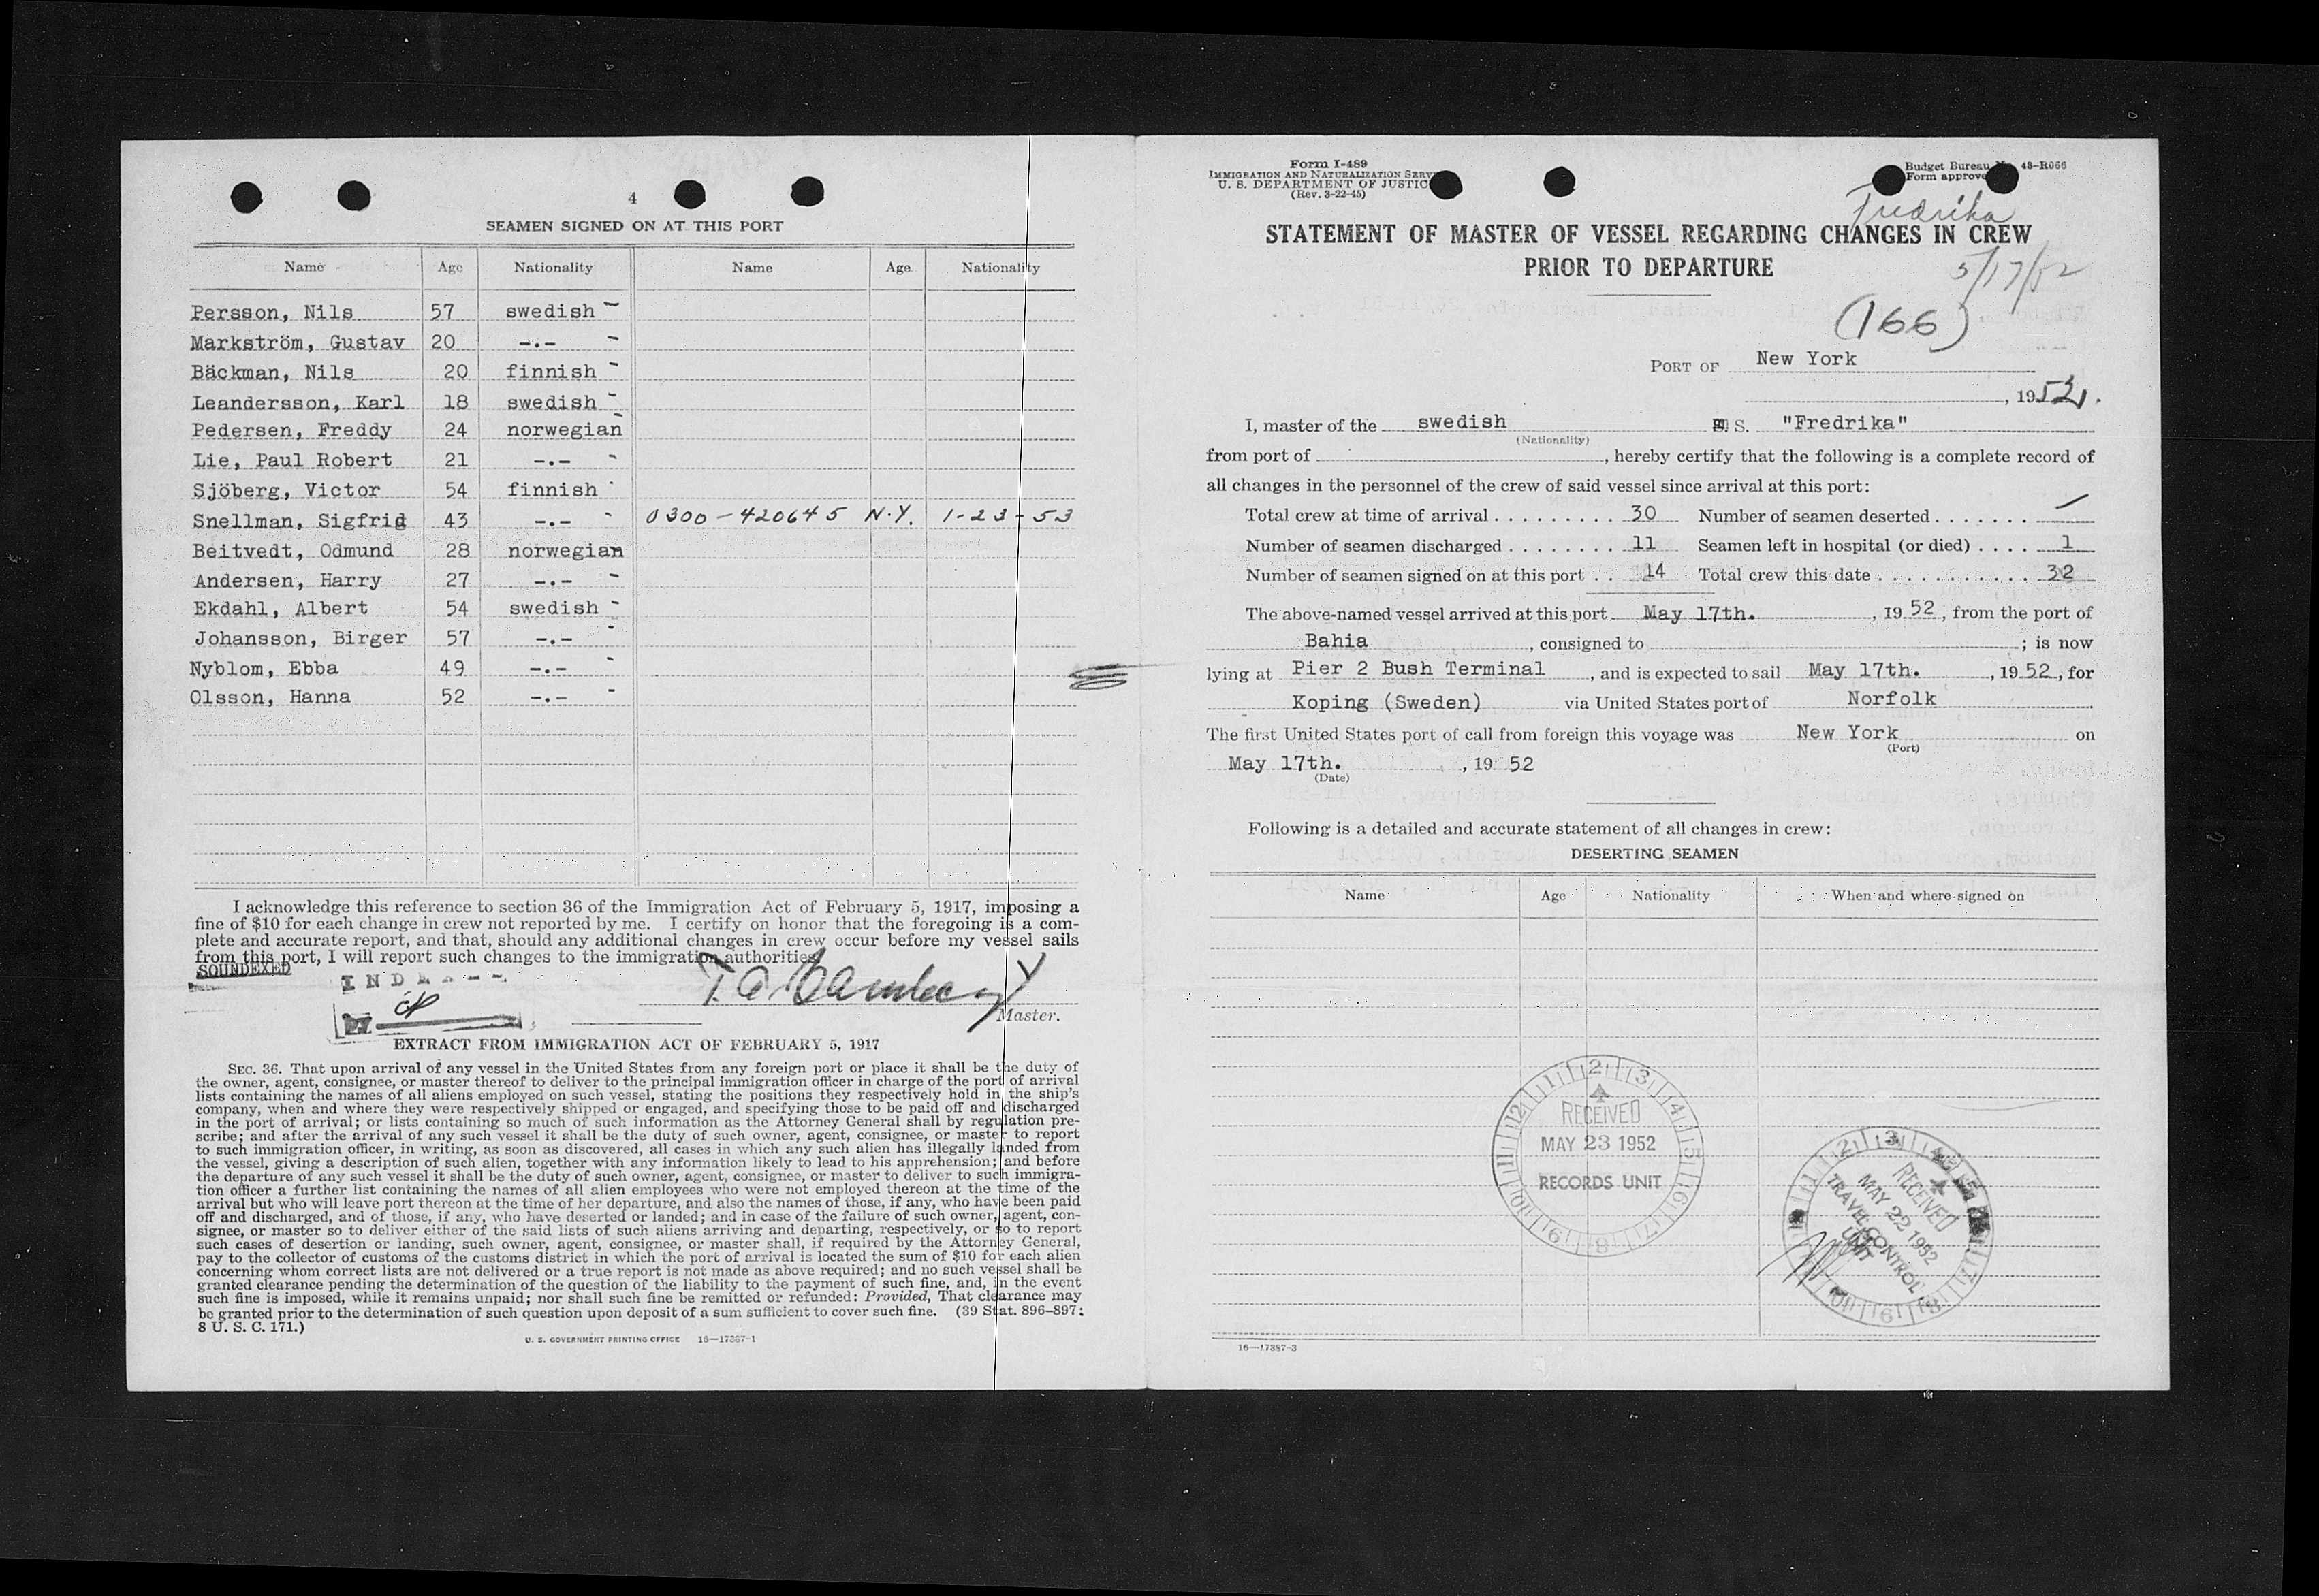 4
SEAMEN SIGNED ON AT THIS PORT
Name Age Nationality Name Age Nationality
Persson, Nils 57 swedish -
Markström, Gustav 20 -.- -
Bäckman, Nils 20 finnish -
Leandersson, Karl 18 swedish -
Pedersen, Freddy 24 norwegian -
Lie, Paul Robert 21 -.- -
Sjöberg, Victor 54 finnish -
Snellman, Sigfrid 43 -.- - 0300-420645 N.Y. 1-23-53
Beitvedt, Odmund 28 norwegian
Andersen, Harry 27 -.- -
Ekdahl, Albert 54 swedish -
Johansson, Birger 57 -.- -
Nyblom, Ebba 49 -.- -
Olsson, Hanna 52 -.- -
I acknowledge this reference to section 36 of the Immigration Act of February 5, 1917, imposing a
fine of $10 for each change in crew not reported by me. I certify on honor that the foregoing is a com-
plete and accurate report, and that, should any additional changes in crew occur before my vessel sails
from this port, I will report such changes to the immigration authorities.
SOUNDEXED
Master.
EXTRACT FROM IMMIGRATION ACT OF FEBRUARY 5, 1917
SEC. 36. That upon arrival of any vessel in the United States from any foreign port or place it shall be the duty of
the owner, agent, consignee, or master thereof to deliver to the principal immigration officer in charge of the port of arrival
lists containing the names of all aliens employed on such vessel, stating the positions they respectively hold in the ship's
company, when and where they were respectively shipped or engaged, and specifying those to be paid off and discharged
in the port of arrival; or lists containing so much of such information as the Attorney General shall by regulation pre-
scribe; and after the arrival of any such vessel it shall be the duty of such owner, agent, consignee, or master to report
to such immigration officer, in writing, as soon as discovered, all cases in which any such alien has illegally landed from
the vessel, giving a description of such alien, together with any information likely to lead to his apprehension; and before
the departure of any such vessel it shall be the duty of such owner, agent, consignee, or master to deliver to such immigra-
tion officer a further list containing the names of all alien employees who were not employed thereon at the time of the
arrival but who will leave port thereon at the time of her departure, and also the names of those, if any, who have been paid
off and discharged, and of those, if any, who have deserted or landed; and in case of the failure of such owner, agent, con-
signee, or master so to deliver either of the said lists of such aliens arriving and departing, respectively, or so to report
such cases of desertion or landing, such owner, agent, consignee, or master shall, if required by the Attorney General,
pay to the collector of customs of the customs district in which the port of arrival is located the sum of $10 for each alien
concerning whom correct lists are not delivered or a true report is not made as above required; and no such vessel shall be
granted clearance pending the determination of the question of the liability to the payment of such fine, and, in the event
such fine is imposed, while it remains unpaid; nor shall such fine be remitted or refunded: Provided, That clearance may
be granted prior to the determination of such question upon deposit of a sum sufficient to cover such fine. (39 Stat. 896-897;
8 U. S. C. 171.)
U. S. GOVERNMENT PRINTING OFFICE 16—17387-1
Form I-489
IMMIGRATION AND NATURALIZATION
U. S. DEPARTMENT OF JUSTIC
(Rev. 3-22-45)
Budget Bureau 43-R066
Form approve
Fredrika
STATEMENT OF MASTER OF VESSEL REGARDING CHANGES IN CREW
PRIOR TO DEPARTURE
5/17/52
(166)
PORT OF New York
, 1952.
I, master of the swedish m. S. "Fredrika"
(Nationality)
from port of , hereby certify that the following is a complete record of
all changes in the personnel of the crew of said vessel since arrival at this port:
Total crew at time of arrival . . . . . . . . . . 30 Number of seamen deserted . . . . . . . —
Number of seamen discharged . . . . . . . . 11 Seamen left in hospital (or died) . . . . 1
Number of seamen signed on at this port . . 14 Total crew this date . . . . . . . . . . . . 32
The above-named vessel arrived at this port May 17th. , 19 52, from the port of
Bahia , consigned to ; is now
lying at Pier 2 Bush Terminal , and is expected to sail May 17th. , 19 52, for
Koping (Sweden) via United States port of Norfolk
The first United States port of call from foreign this voyage was New York on
(Port)
May 17th. , 19 52
(Date)
Following is a detailed and accurate statement of all changes in crew:
DESERTING SEAMEN
Name Age Nationality When and where signed on
RECEIVED
MAY 23 1952
RECORDS UNIT
RECEIVED
MAY 22 1952
TRAVEL CONTROL
UNIT
16—17387-3